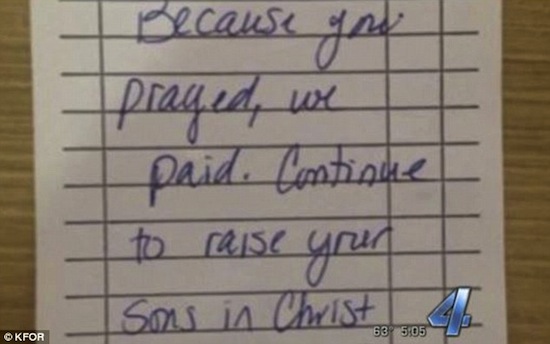 Because you
prayed, we
paid. Continue
to raise your
Sons in Christ
63° 5:05 4
© KFOR